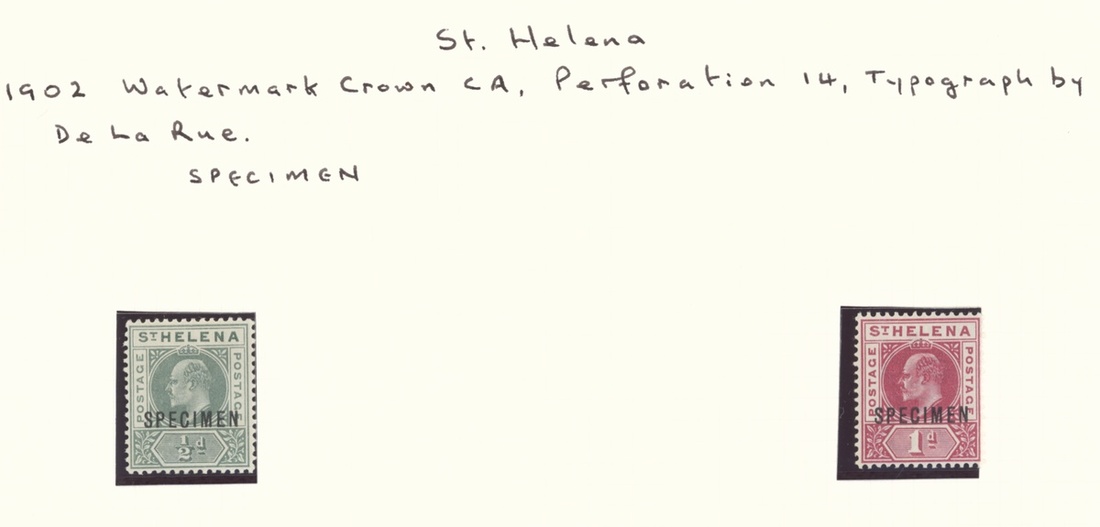 St. Helena
1902 Watermark Crown CA, Perforation 14, Typograph by
De La Rue.
SPECIMEN
ST HELENA
POSTAGE
POSTAGE
SPECIMEN
½d
ST HELENA
POSTAGE
POSTAGE
SPECIMEN
1d